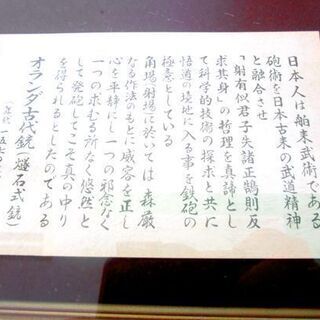 日本人は舶来武術である
砲術を日本古来の武道精神
と融合させ
「射有似君子失諸正鵠則反
求其身」の哲理を真諦とし
て科学的技術の探求と共に
悟道の境地に入る事を鉄砲の
極意としている
角場射場に於いては 森厳
なる作法のもとに威容を正し
心を平静にし一つの邪念なく
一つの求むる所なく悠然と
して発砲してこそ真の中り
を得られるとしたのである
オランダ古代銃(燧石式銃)